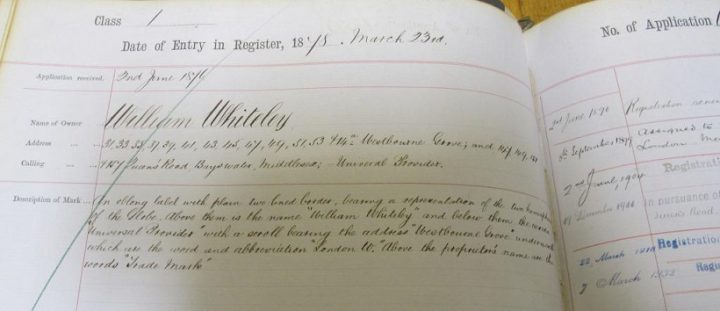 Class 1
Date of Entry in Register, 1878 March 23rd.
Application received. 2nd June 1876
Name of Owner William Whiteley
Address 31, 33, 35, 37, 39, 41, 43, 45, 47, 49, 51, 53 Westbourne Grove; and 147, 149,
Calling Queen's Road Bayswater, Middlesex; Universal Provider.
Description of Mark An oblong label with plain two lined border, bearing a representation of the two hemispheres
of the Globe. Above them is the name "William Whiteley" and below them the words
"Universal Provider" with a scroll bearing the address "Westbourne Grove" underneath
which are the word and abbreviation "London W." Above the proprietor's name are the
words "Trade Mark"
No. of Application
2nd June 1890 Registration
5th September 1899 assigned to
London
2nd June, 1904 Registrati
December 1906 in pursuance of
Registration
22, March 1918
7 March 1932 Regist